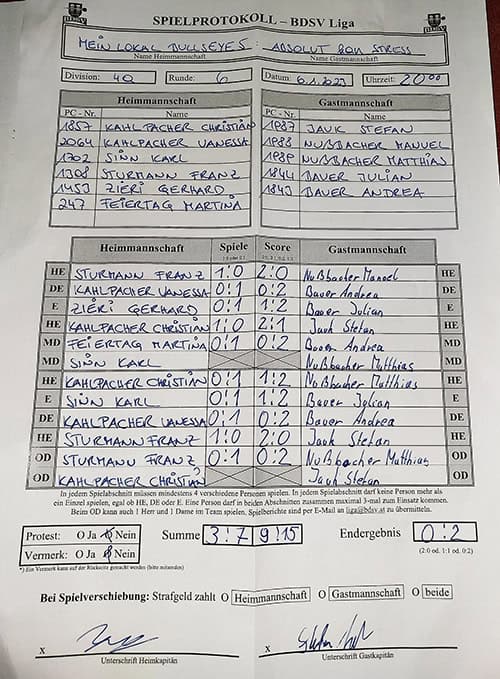 SPIELPROTOKOLL – BDSV Liga
MEIN LOKAL BULLSEYES : ABSOLUT BOW STRESS
Name Heimmannschaft Name Gastmannschaft
Division: 4Q Runde: 6 Datum: 6.1.2023 Uhrzeit: 20 00
Heimmannschaft Gastmannschaft
PC - Nr. Name PC - Nr. Name
1857 KAHLPACHER CHRISTIAN 1987 JAUK STEFAN
2064 KAHLPACHER VANESSA 1988 NUßBACHER MANUEL
1702 SINN KARL 1989 NUßBACHER MATTHIAS
1308 STURMANN FRANZ 1844 BAUER JULIAN
1453 ZIERI GERHARD 1843 BAUER ANDREA
247 FEIERTAG MARTINA
Heimmannschaft Spiele Score Gastmannschaft
HE STURMANN FRANZ 1:0 2:0 Nußbacher Manuel HE
DE KAHLPACHER VANESSA 0:1 0:2 Bauer Andrea DE
E ZIERI GERHARD 0:1 1:2 Bauer Julian E
HE KAHLPACHER CHRISTIAN 1:0 2:1 Jauk Stefan HE
MD FEIERTAG MARTINA 0:1 0:2 Bauer Andrea MD
MD SINN KARL Nußbacher Matthias MD
HE KAHLPACHER CHRISTIAN 0:1 1:2 Nußbacher Matthias HE
E SINN KARL 0:1 1:2 Bauer Julian E
DE KAHLPACHER VANESSA 0:1 0:2 Bauer Andrea DE
HE STURMANN FRANZ 1:0 2:0 Jauk Stefan HE
OD STURMANN FRANZ 0:1 0:2 Nußbacher Matthias OD
OD KAHLPACHER CHRISTIAN Jauk Stefan OD
In jedem Spielabschnitt müssen mindestens 4 verschiedene Personen spielen. In jedem Spielabschnitt darf keine Person mehr als
ein Einzel spielen, egal ob HE, DE oder E. Eine Person darf in beiden Abschnitten zusammen maximal 3-mal zum Einsatz kommen.
Beim OD kann auch 1 Herr und 1 Dame im Team spielen. Spielberichte sind per E-Mail an liga@bdsv.at zu übermitteln.
Protest: O Ja O Nein Summe 3:7 9:15 Endergebnis 0:2
Vermerk: O Ja O Nein (2:0 od. 1:1 od. 0:2)
*) Ein Vermerk kann auf der Rückseite gemacht werden (bitte mitsenden)
Bei Spielverschiebung: Strafgeld zahlt O Heimmannschaft O Gastmannschaft O beide
x x
Unterschrift Heimkapitän Unterschrift Gastkapitän